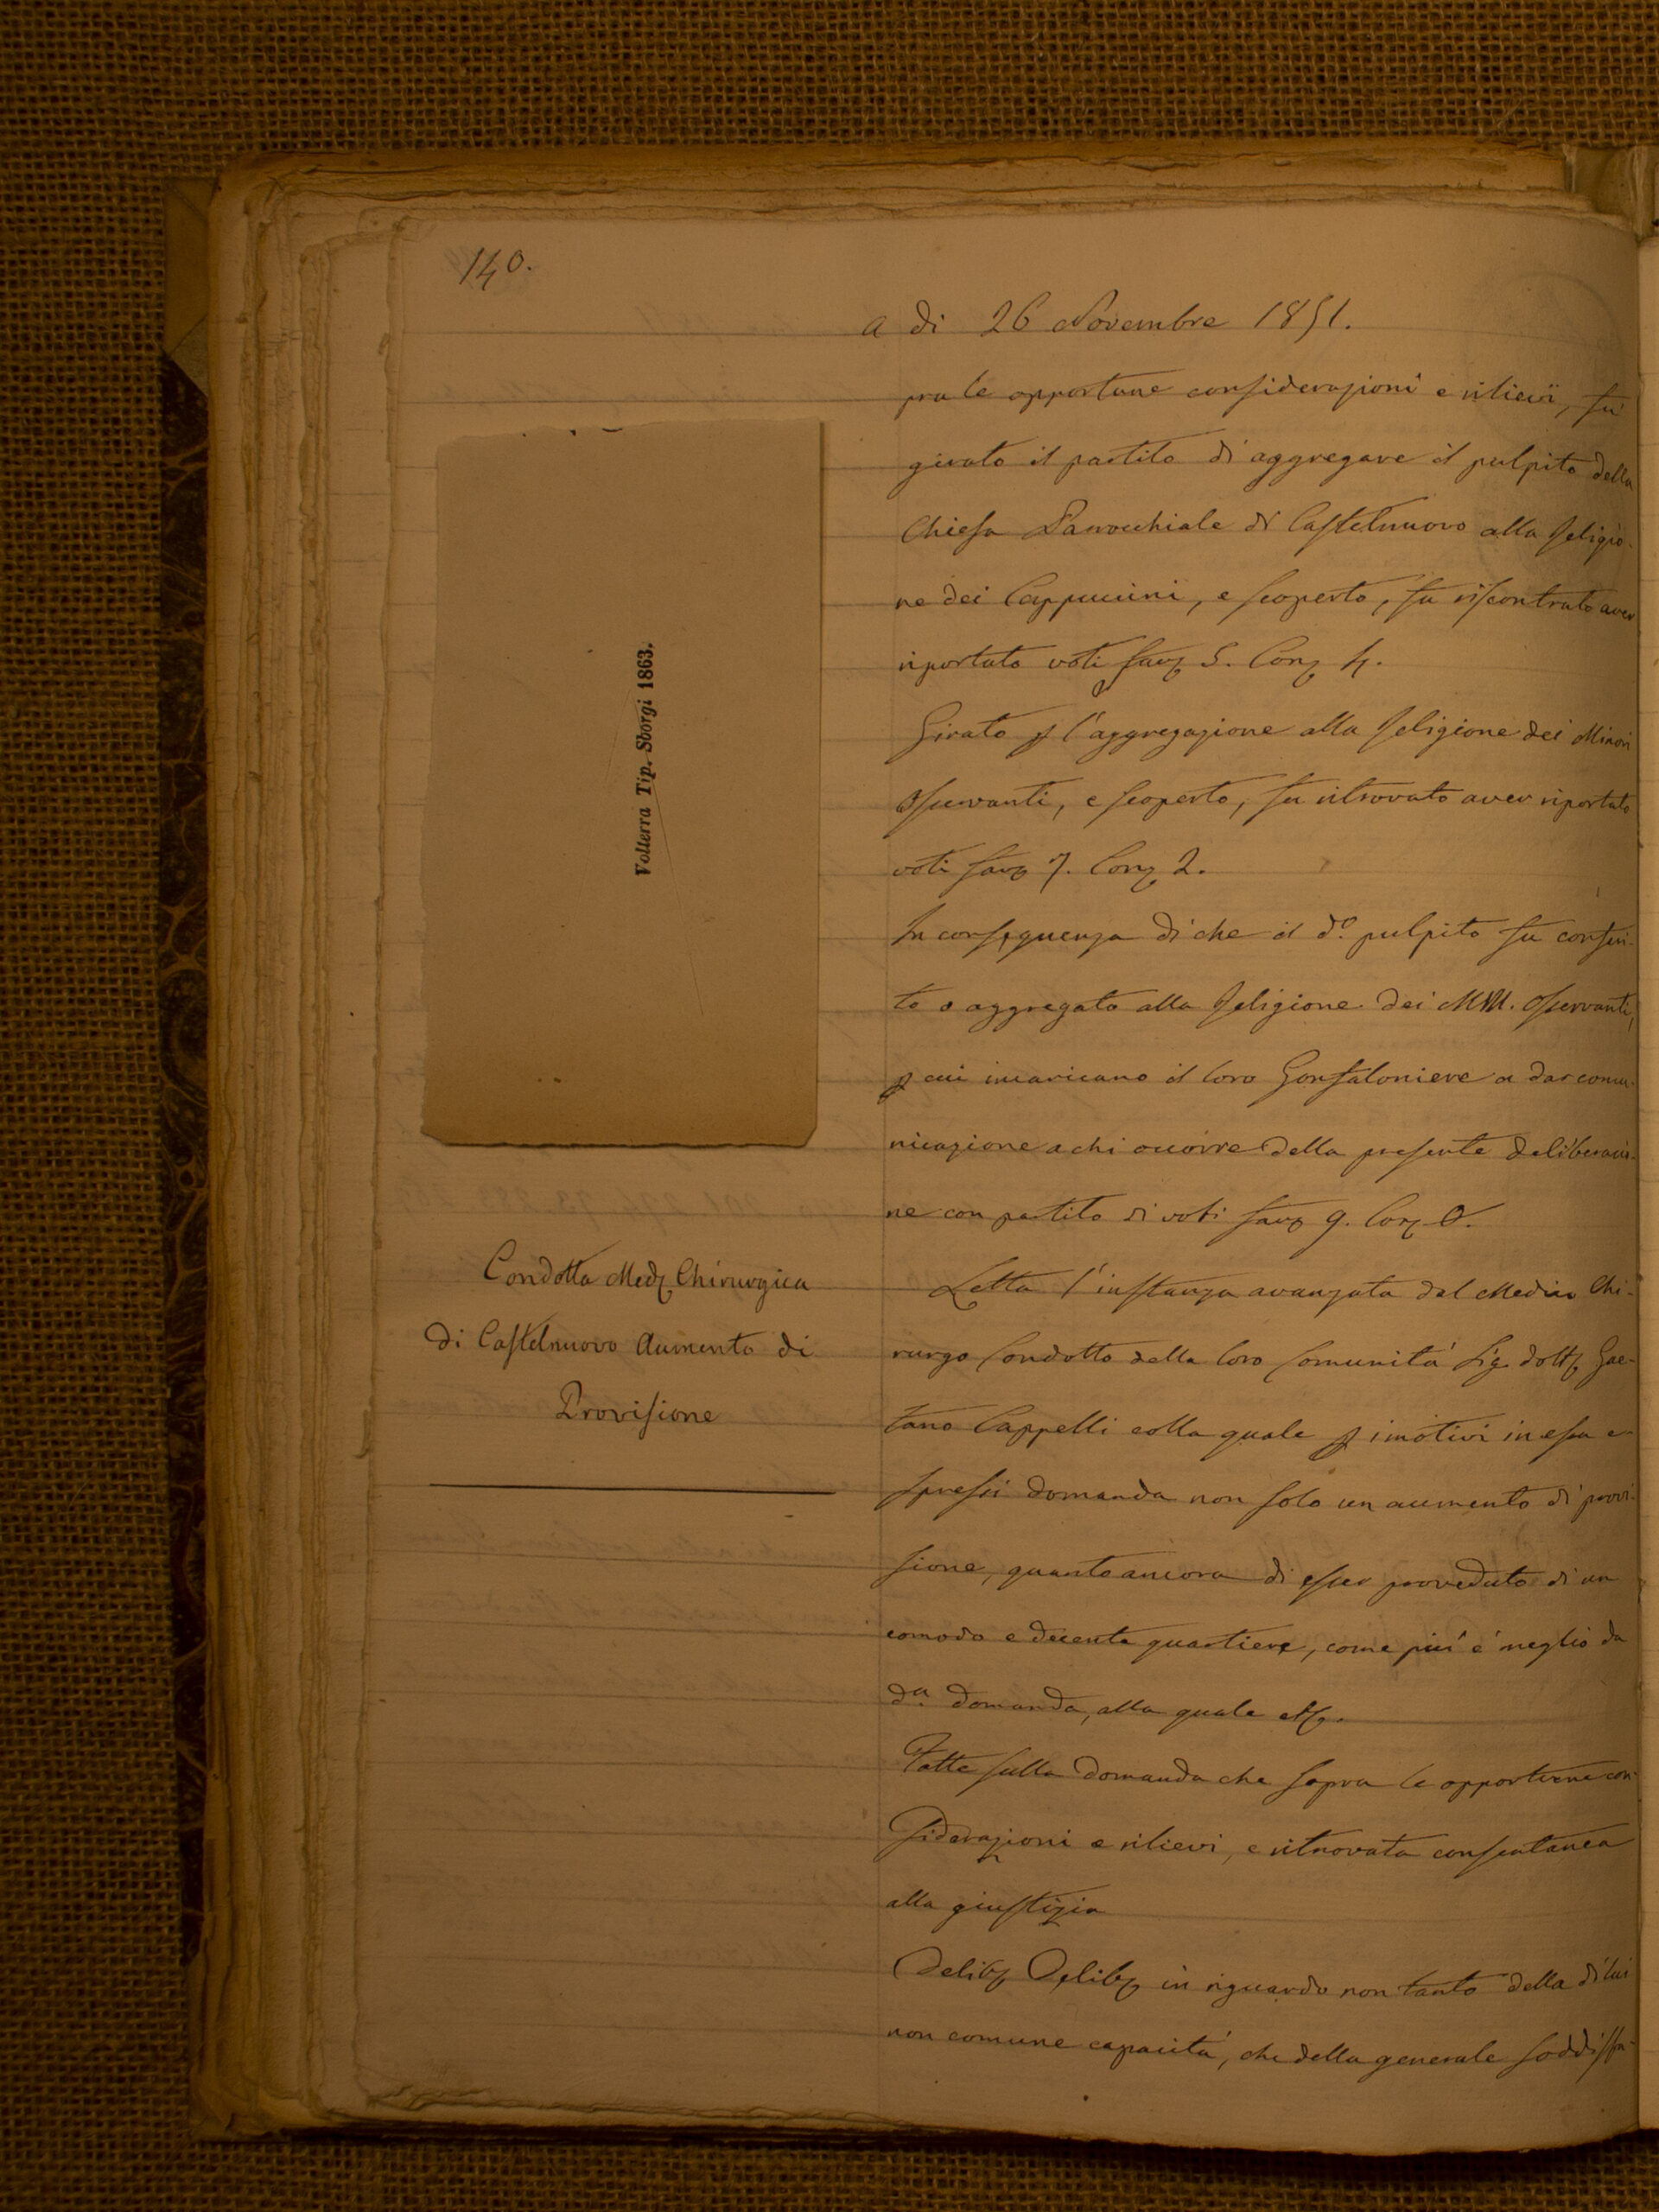 140.
a di 26 Novembre 1851.
pra le opportune considerazioni e rilievi, fu
girato il partito di aggregare il pulpito della
Chiesa Parrocchiale di Castelnuovo alla Religio-
ne dei Cappuccini, e scoperto, fu riscontrato aver
riportato voti favʒ 5. Conʒ 4.
Girato p l'aggregazione alla Religione dei Minori
Osservanti, e scoperto, fu ritrovato aver riportato
voti favʒ 7. Conʒ 2.
In conseguenza di che il d.º pulpito fu conferi-
to o aggregato alla Religione dei MM. Osservanti,
p cui incaricano il loro Gonfaloniere a dar comu-
nicazione a chi occorre della presente deliberazio-
ne con partito di voti favʒ 9. Conʒ 0.
Condotta Medʒ Chirurgica
di Castelnuovo Aumento di
Provisione
Letta l'instanza avanzata dal Medico Chi-
rurgo Condotto della loro Comunità Sig. Dottʒ Gae-
tano Cappelli colla quale p i motivi in essa e-
spressi domanda non solo un aumento di provi-
sione, quanto ancora di esser proveduto di un
comodo e decente quartiere, come più e meglio da
d.ª domanda, alla quale etʒ.
Fatte sulla domanda che sopra le opportune con-
siderazioni e rilievi, e ritrovata consentanea
alla giustizia
Delibʒ Delibʒ in riguardo non tanto della di lui
non comune capacità, che della generale soddisfa-
Volterra Tip. Sborgi 1863.